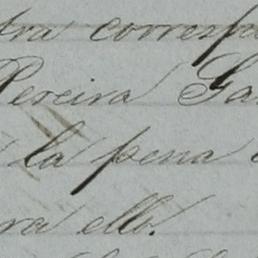 tra corresp
Pereira Ga
la pena
ra ello.